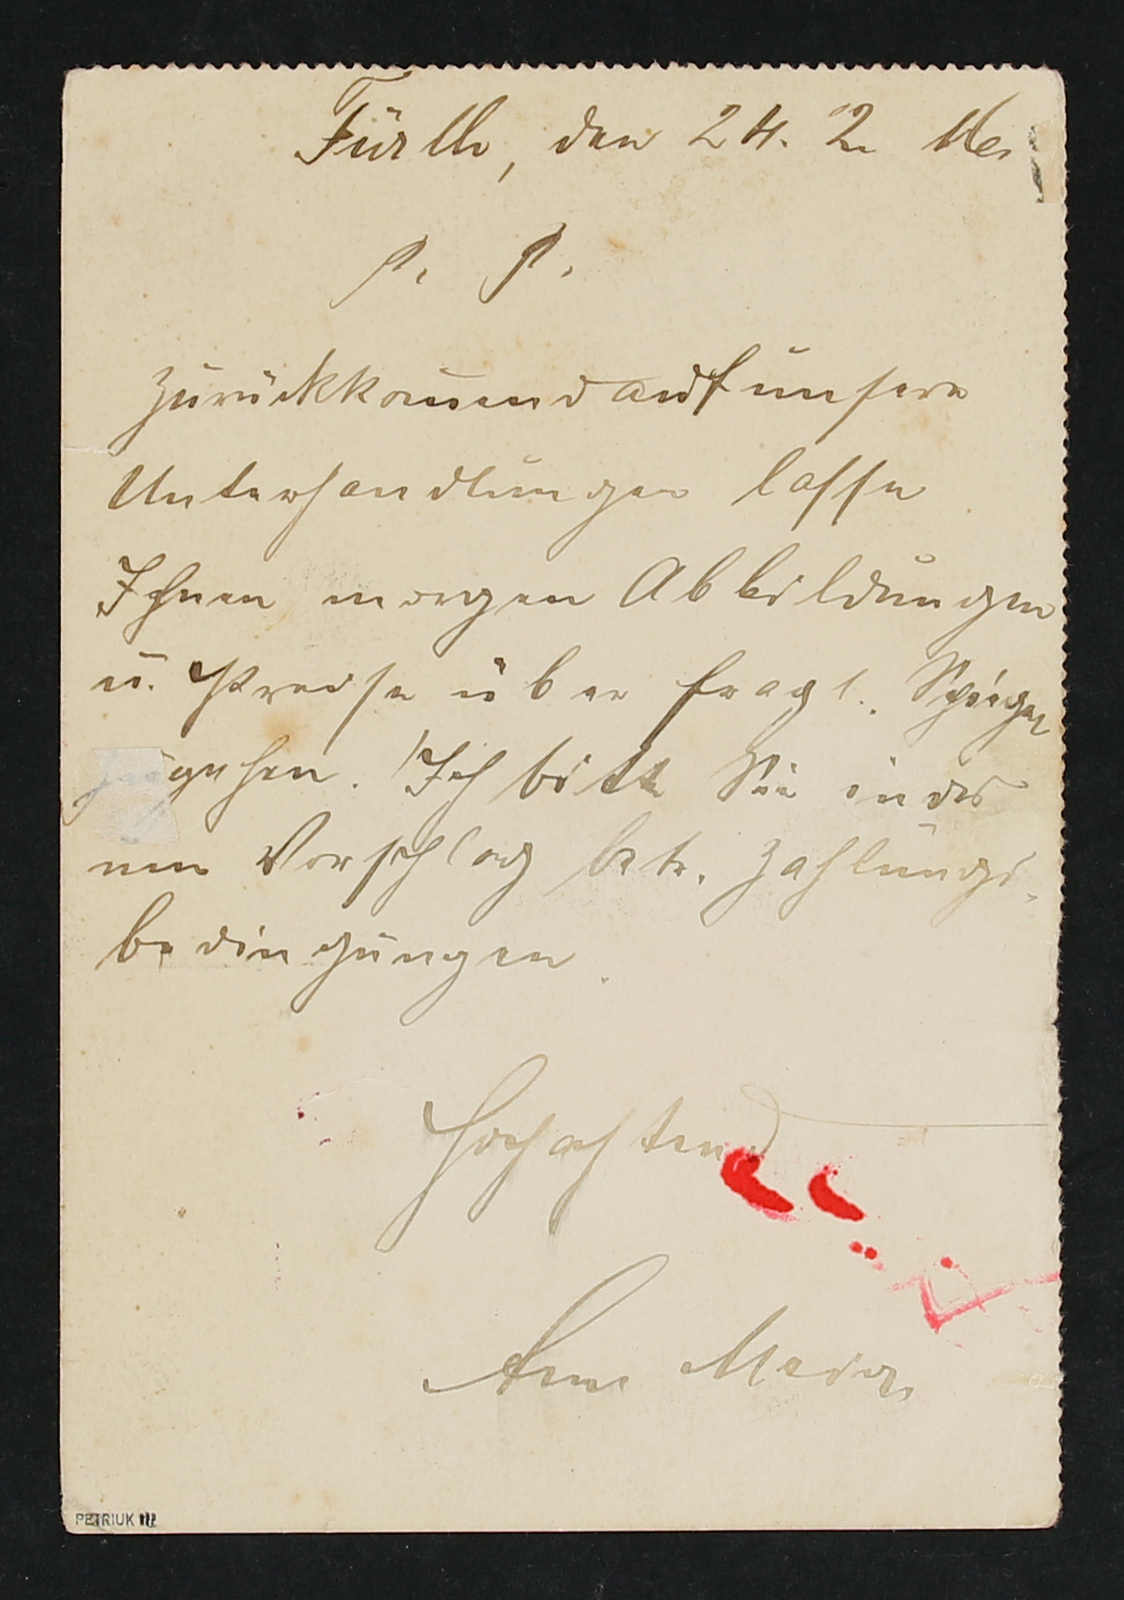 Fürth, den 24. 2.
P. P.
Zurückkommend auf unsere
Unterhandlungen lasse
Ihnen morgen Abbildungen
u. Preise über fragl. Spiegel
zugehen. Ich bitte Sie indes
um Vorschlag betr. Zahlungs-
bedingungen.
Hochachtend
Meier
PETRIUK III